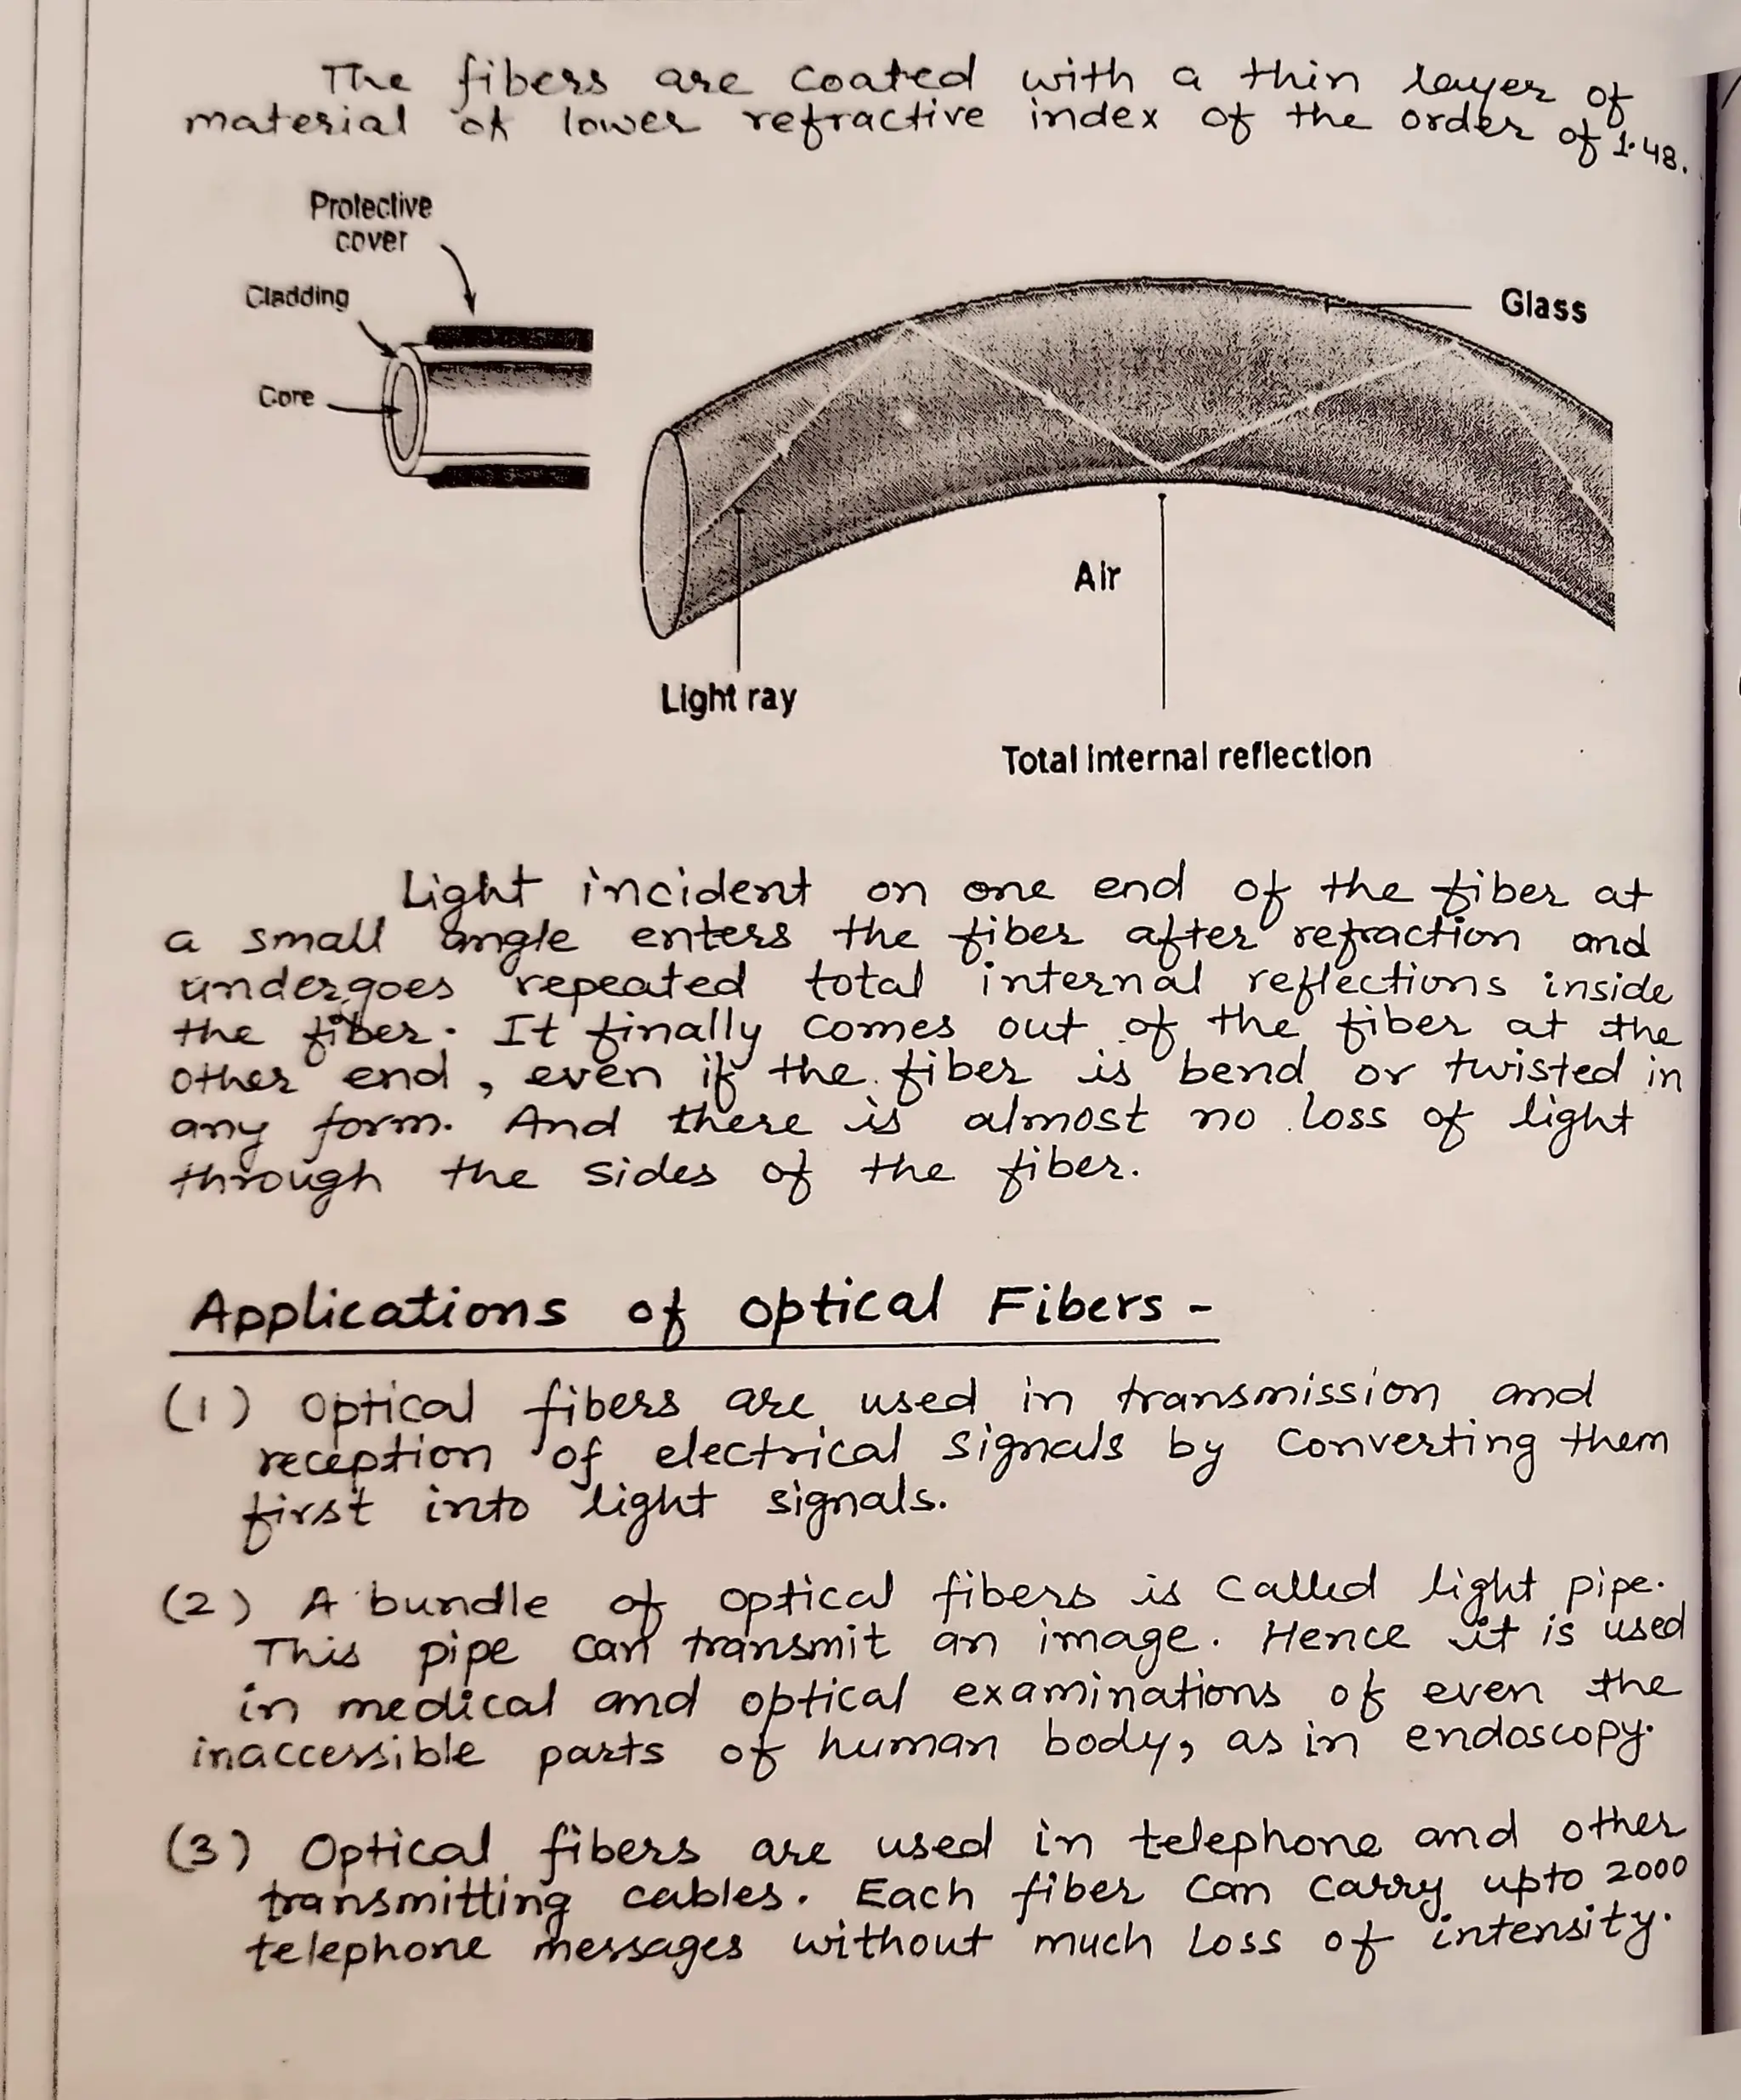 The fibers are coated with a thin layer of
material of lower refractive index of the order of 1.48.
Protective
cover
Cladding
Core
Glass
Air
Light ray
Total internal reflection
Light incident on one end of the fiber at
a small angle enters the fiber after refraction and
undergoes repeated total internal reflections inside
the fiber. It finally comes out of the fiber at the
other end, even if the fiber is bend or twisted in
any form. And there is almost no loss of light
through the sides of the fiber.
Applications of optical Fibers -
(1) Optical fibers are used in transmission and
reception of electrical signals by converting them
first into light signals.
(2) A bundle of optical fibers is called light pipe.
This pipe can transmit an image. Hence it is used
in medical and optical examinations of even the
inaccessible parts of human body, as in endoscopy.
(3) Optical fibers are used in telephone and other
transmitting cables. Each fiber can carry upto 2000
telephone messages without much loss of intensity.